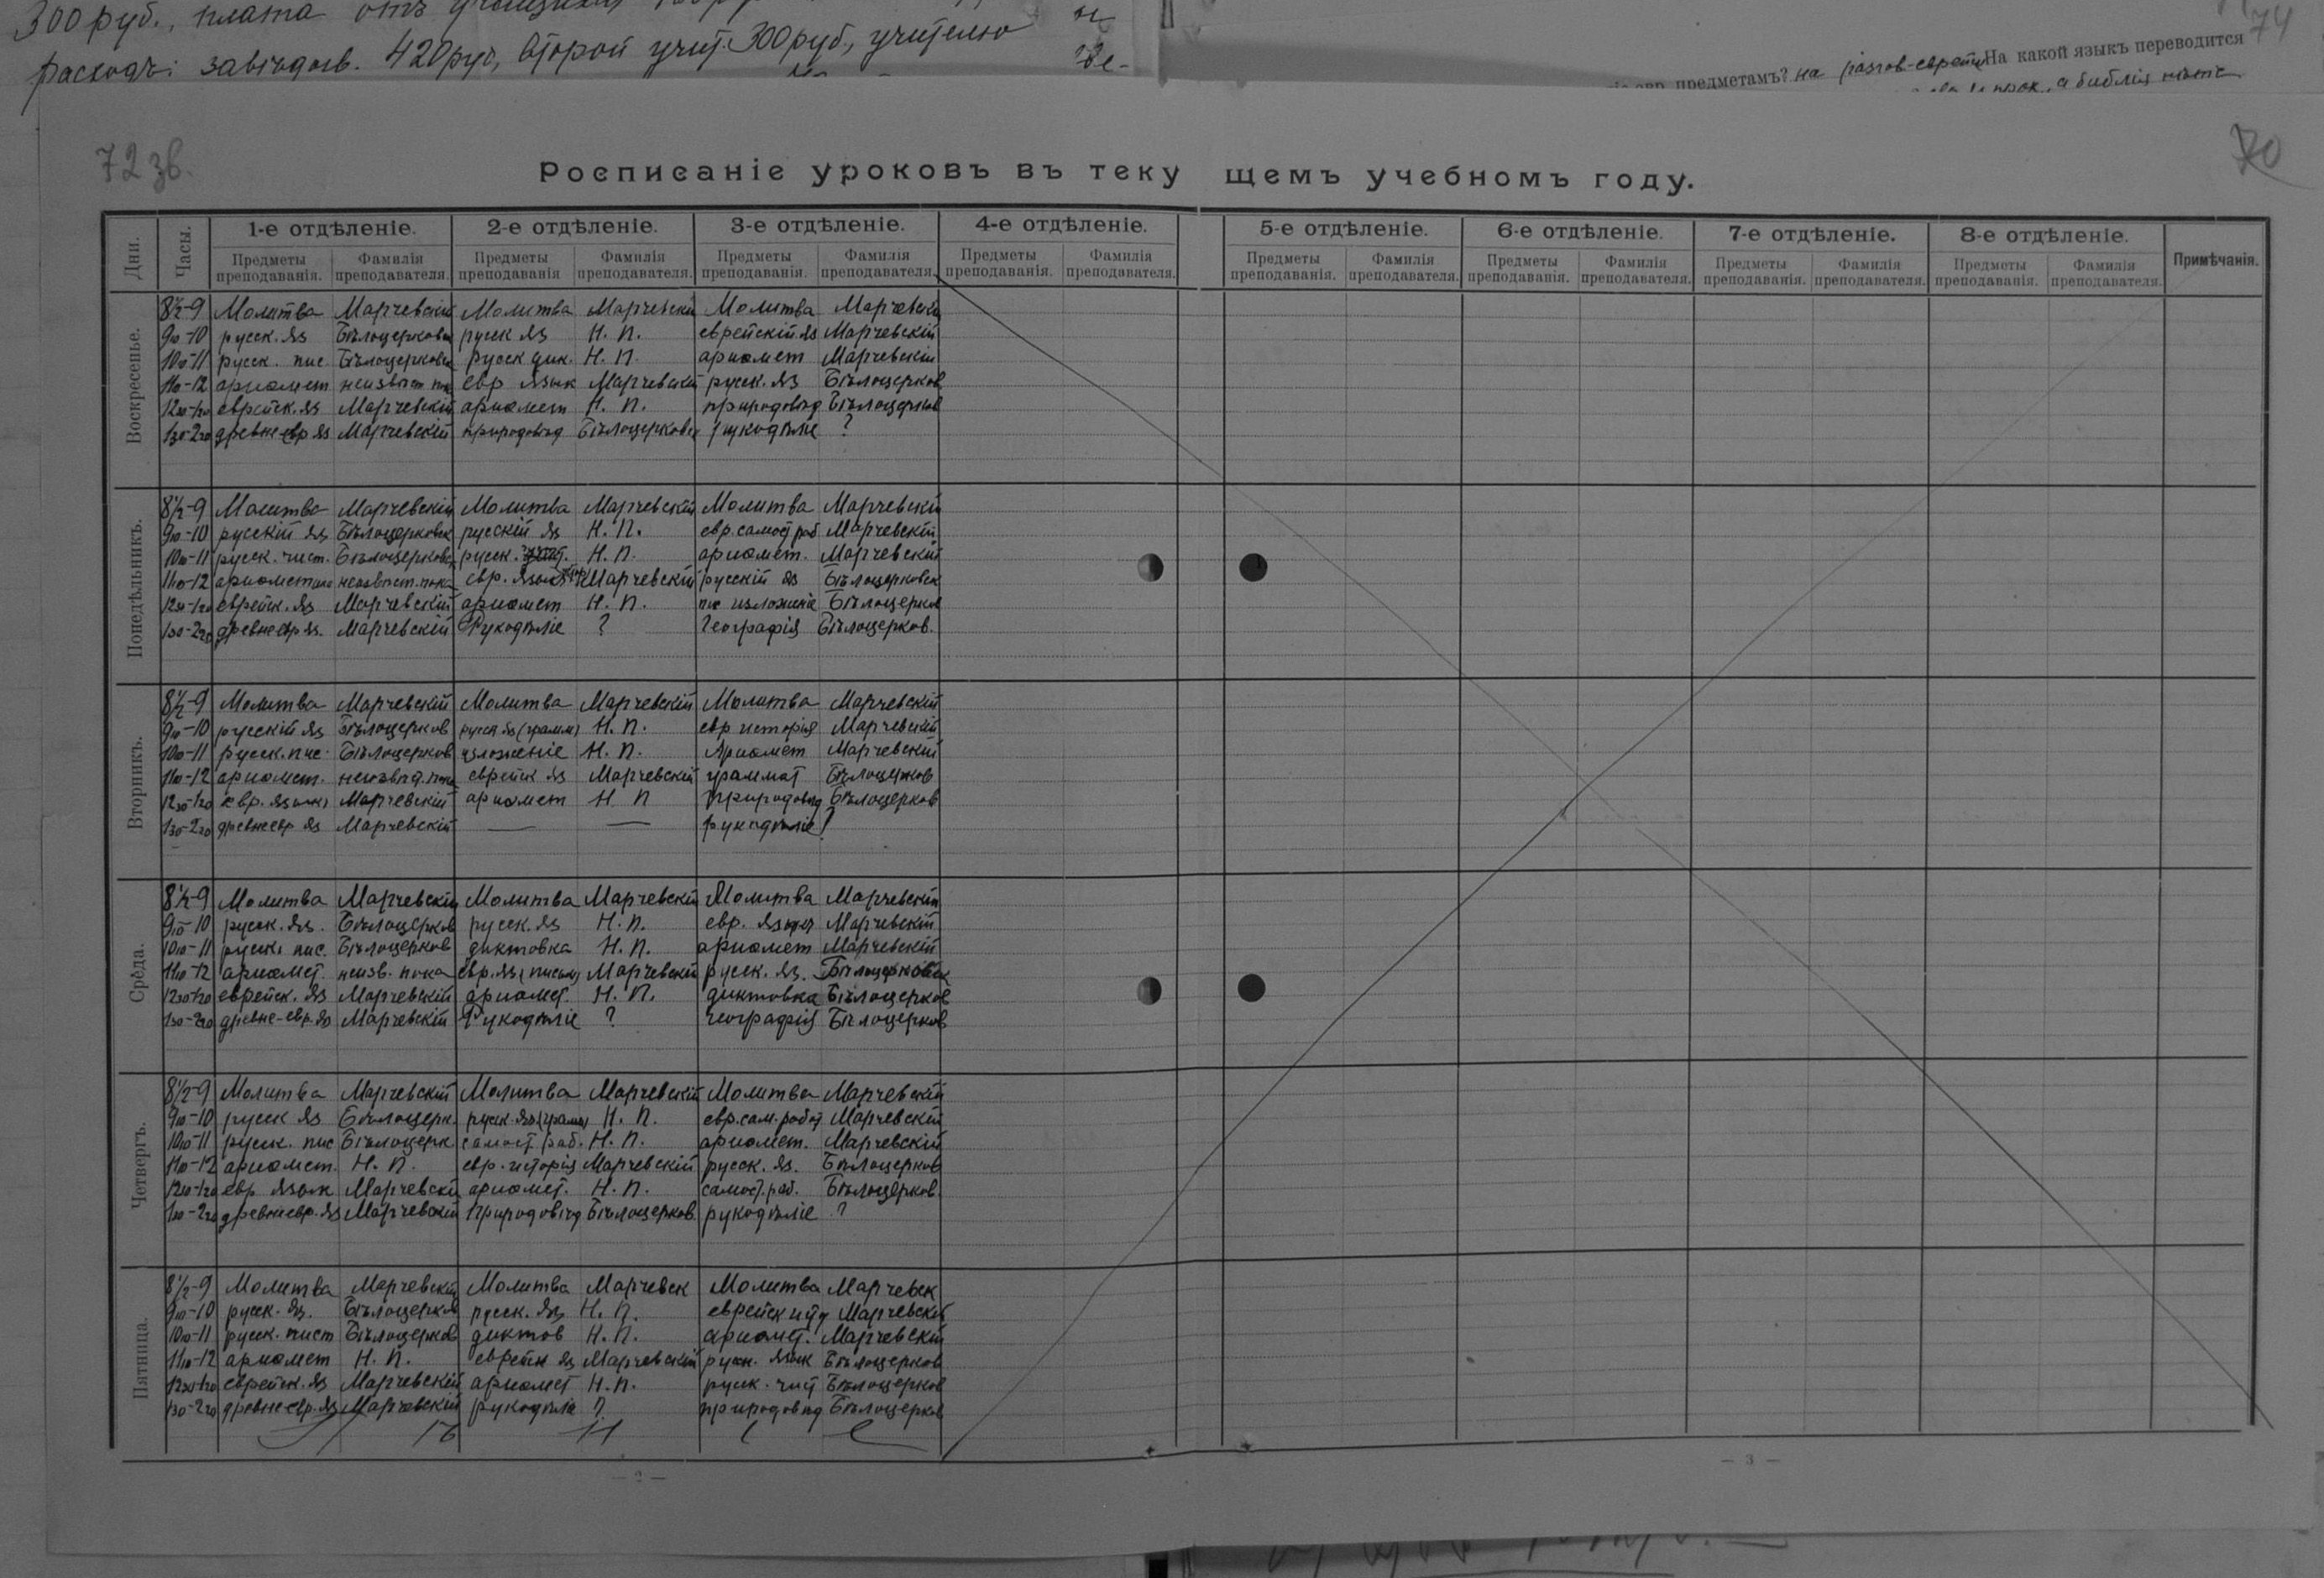 300 руб., плата отъ
расходъ: завѣдыв. 420 руб, второй учит. 300 руб, учителю
предметамъ? на разгов-еврейск На какой языкъ переводится
а библія
74
72 зв.
70
Росписаніе уроковъ въ текущемъ учебномъ году.
Дни. Часы. 1-е отдѣленіе. 2-е отдѣленіе. 3-е отдѣленіе. 4-е отдѣленіе. 5-е отдѣленіе. 6-е отдѣленіе. 7-е отдѣленіе. 8-е отдѣленіе. Примѣчанія.
Предметы преподаванія. Фамилія преподавателя. Предметы преподаванія Фамилія преподавателя. Предметы преподаванія. Фамилія преподавателя. Предметы преподаванія. Фамилія преподавателя. Предметы преподаванія. Фамилія преподавателя. Предметы преподаванія. Фамилія преподавателя. Предметы преподаванія. Фамилія преподавателя. Предметы преподаванія. Фамилія преподавателя.
Воскресенье.
8½-9 Молитва Марчевскій Молитва Марчевскій Молитва Марчевскій
9 10-10 русск. яз Бѣлоцерковск русск яз Н. П. еврейскій яз Марчевскій
10 10-11 русск. пис Бѣлоцерковск русск дик. Н. П. ариѳмет Марчевскій
11 10-12 ариѳмет неизвѣст пока евр языкъ Марчевскій русск. яз Бѣлоцерков
12 30-1 20 еврейск. яз Марчевскій ариѳмет Н. П. природовѣд Бѣлоцерков
1 30-2 20 древне евр яз Марчевскій природовѣд Бѣлоцерковск рукодѣліе ?
Понедѣльникъ.
8½-9 Молитва Марчевскій Молитва Марчевскій Молитва Марчевскій
9 10-10 русскій яз Бѣлоцерковск русскій яз Н. П. евр. самост раб Марчевскій
10 10-11 русск. чист. Бѣлоцерковск русск. Н. П. ариѳмет. Марчевскій
11 10-12 ариѳметика неизвѣст. пока евр. языкъ Марчевскій русскій яз Бѣлоцерковск
12 30-1 20 еврейск. яз Марчевскій ариѳмет Н. П. изложеніе Бѣлоцерков
1 30-2 20 древне евр яз. Марчевскій Рукодѣліе ? Географія Бѣлоцерков.
Вторникъ.
8½-9 Молитва Марчевскій Молитва Марчевскій Молитва Марчевскій
9 10-10 русскій яз Бѣлоцерков русск яз (грамм) Н. П. евр исторія Марчевскій
10 10-11 русск. пис. Бѣлоцерков изложеніе Н. П. Ариѳмет Марчевскій
11 10-12 ариѳмет. неизвѣд. пока еврейск яз Марчевскій граммат Бѣлоцерков
12 30-1 20 евр. языкъ Марчевскій ариѳмет Н П природовѣд Бѣлоцерков
1 30-2 20 древнеевр яз Марчевскій — — рукодѣліе ?
Срѐда.
8½-9 Молитва Марчевскій Молитва Марчевскій Молитва Марчевскій
9 10-10 русск. яз. Бѣлоцерков русск. яз Н. П. евр. языкъ Марчевскій
10 10-11 русск. пис. Бѣлоцерков диктовка Н. П. ариѳмет Марчевскій
11 10-12 ариѳмет. неизв. пока евр. яз (письм) Марчевскій русск. яз. Бѣлоцерковск
12 30-1 20 еврейск. яз Марчевскій ариѳмет. Н. П. диктовка Бѣлоцерков
1 30-2 20 древне-евр. яз Марчевскій Рукодѣліе ? географія Бѣлоцерков
Четвергъ.
8½-9 Молитва Марчевскій Молитва Марчевскій Молитва Марчевскій
9 10-10 русск яз Бѣлоцерк. русск. яз (грамм) Н. П. евр. сам. работ Марчевскій
10 10-11 русск. пис Бѣлоцерк. самост. раб. Н. П. ариѳмет. Марчевскій
11 10-12 ариѳмет. Н. П. евр. исторія Марчевскій русск. яз. Бѣлоцерков
12 30-1 20 евр языкъ Марчевскій ариѳмет. Н. П. самост. раб. Бѣлоцерков.
1 30-2 20 древнеевр. яз Марчевскій Природовѣд Бѣлоцерков. рукодѣліе ?
Пятница.
8½-9 Молитва Марчевскій Молитва Марчевск Молитва Марчевск
9 10-10 русск. яз. Бѣлоцерков русск. яз Н. П. еврейск Марчевскій
10 10-11 русск. чист Бѣлоцерков диктов Н. П. ариѳмет. Марчевскій
11 10-12 ариѳмет Н. П. еврейск яз Марчевскій русск. языкъ Бѣлоцерков
12 30-1 20 еврейск. яз Марчевскій ариѳмет Н. П. русск. чист Бѣлоцерков
1 30-2 20 древне евр. яз Марчевскій рукодѣліе ? природовѣд Бѣлоцерков
— 2 —
— 3 —